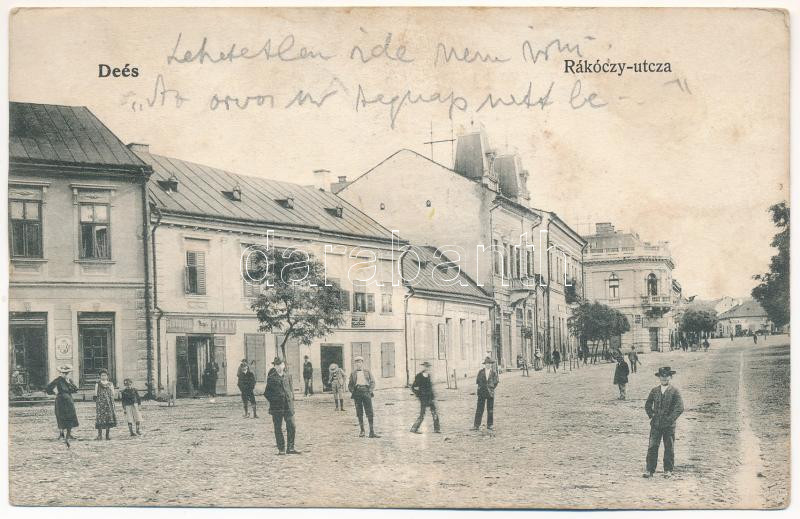 Lehetetlen ide nem írni.
Deés
Rákóczy-utcza
"Az orvos úr tegnap nett be - "
darabanth